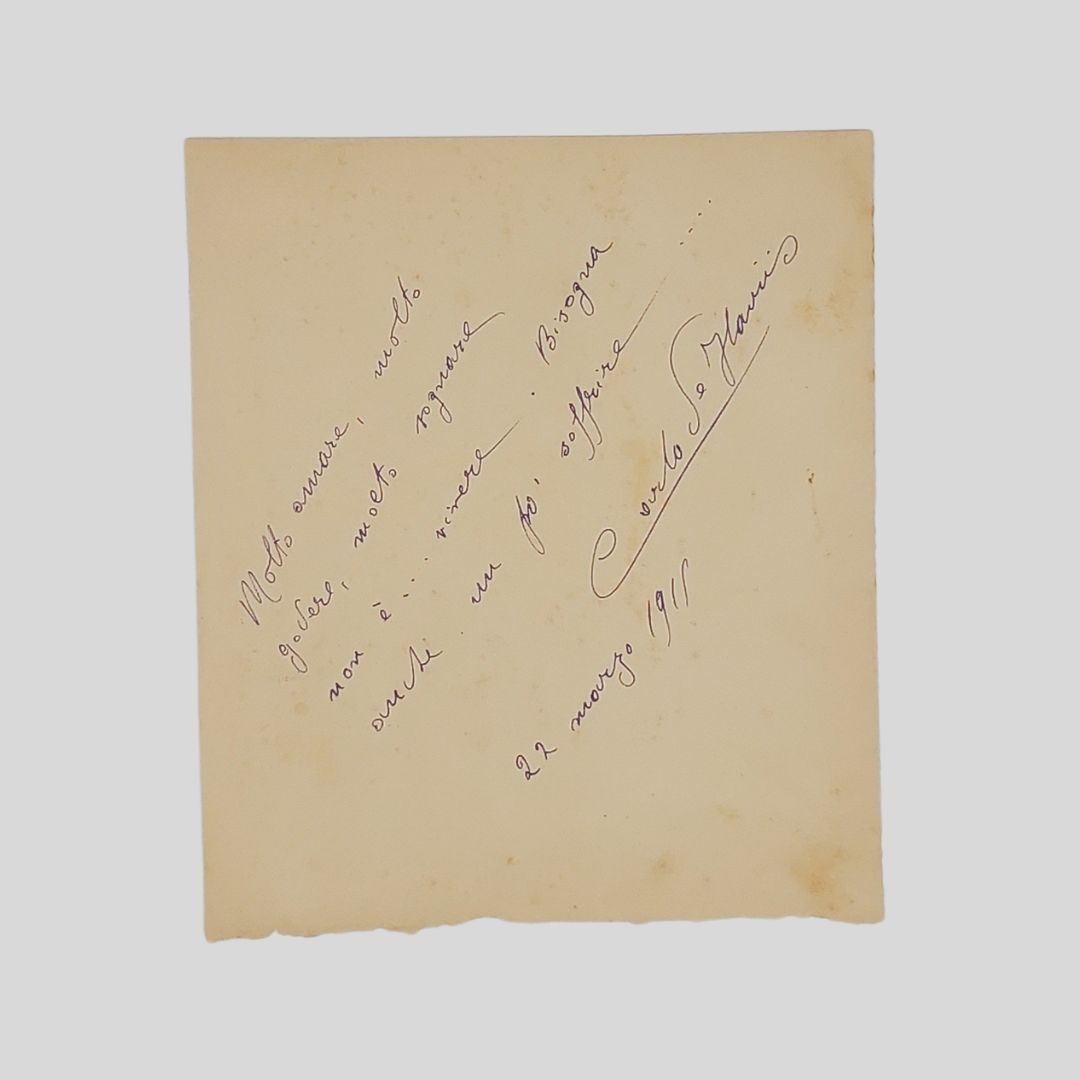 Molto amare, molto
godere, molto sognare
non è.... vivere. Bisogna
anche un po' soffrire ....
Carlo De Flaviis
22 marzo 1915